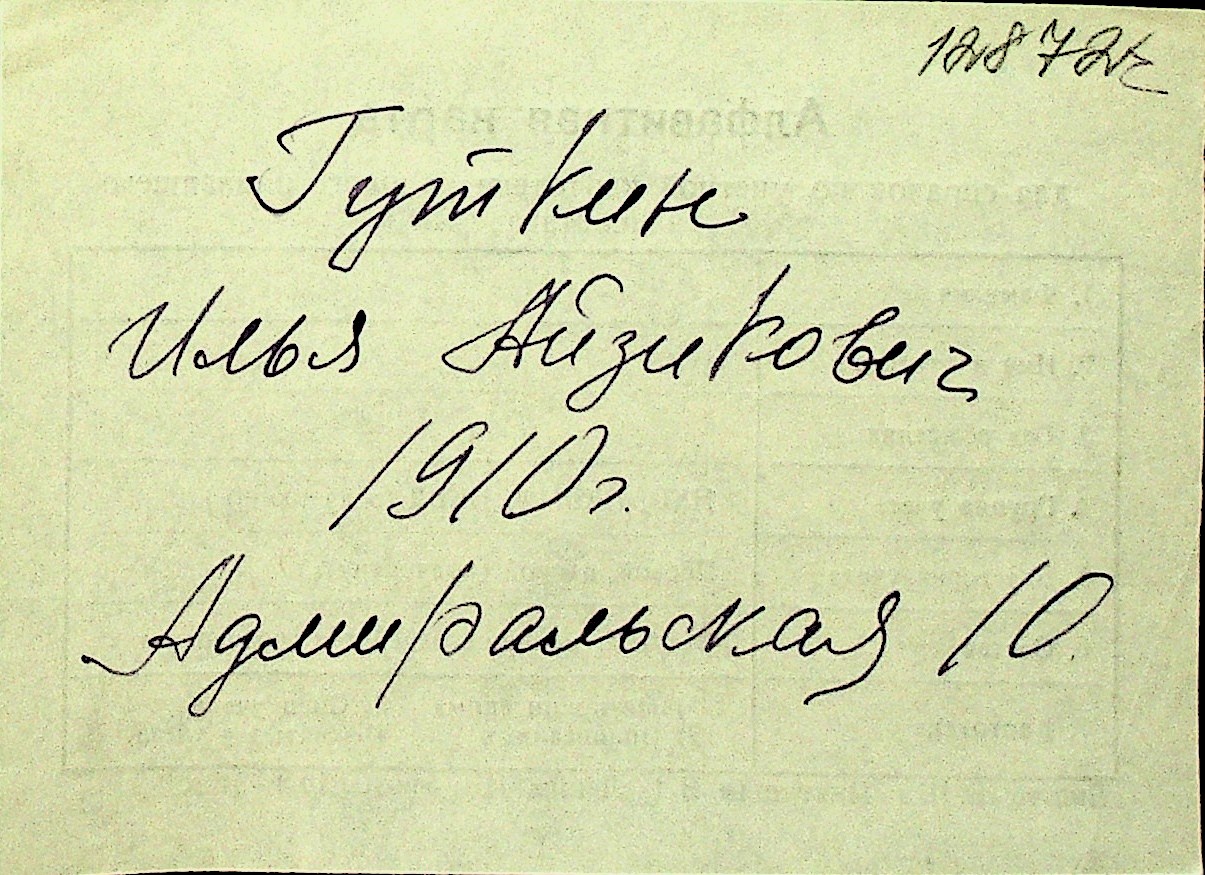 12872
Гуткин
Илья Айзикович
1910г.
Адмиральская 10.